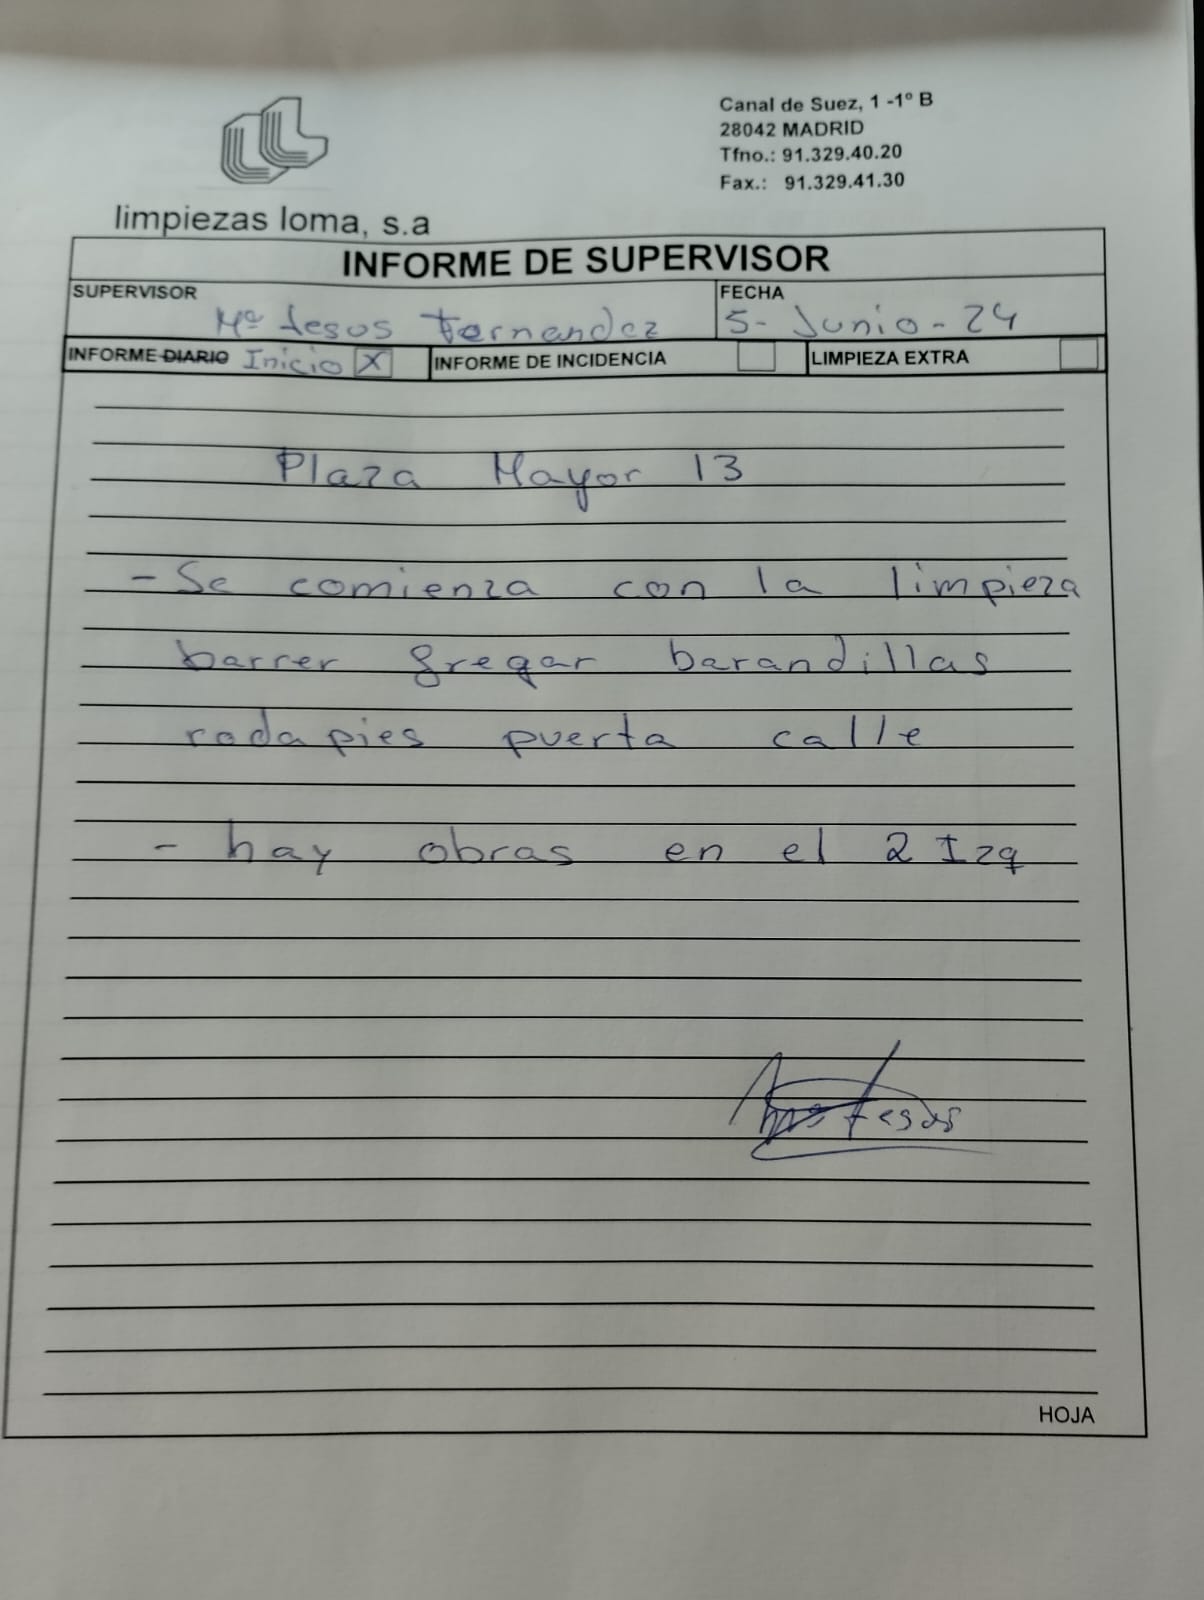 Canal de Suez, 1 -1º B
28042 MADRID
Tfno.: 91.329.40.20
Fax.: 91.329.41.30
limpiezas loma, s.a
INFORME DE SUPERVISOR
SUPERVISOR
Mª Jesus Fernandez
FECHA
5- Junio - 24
INFORME DIARIO Inicio X
INFORME DE INCIDENCIA
LIMPIEZA EXTRA
Plaza Mayor 13
- Se comienza con la limpieza
barrer fregar barandillas
rodapies puerta calle
- hay obras en el 2 Izq
Jesus
HOJA